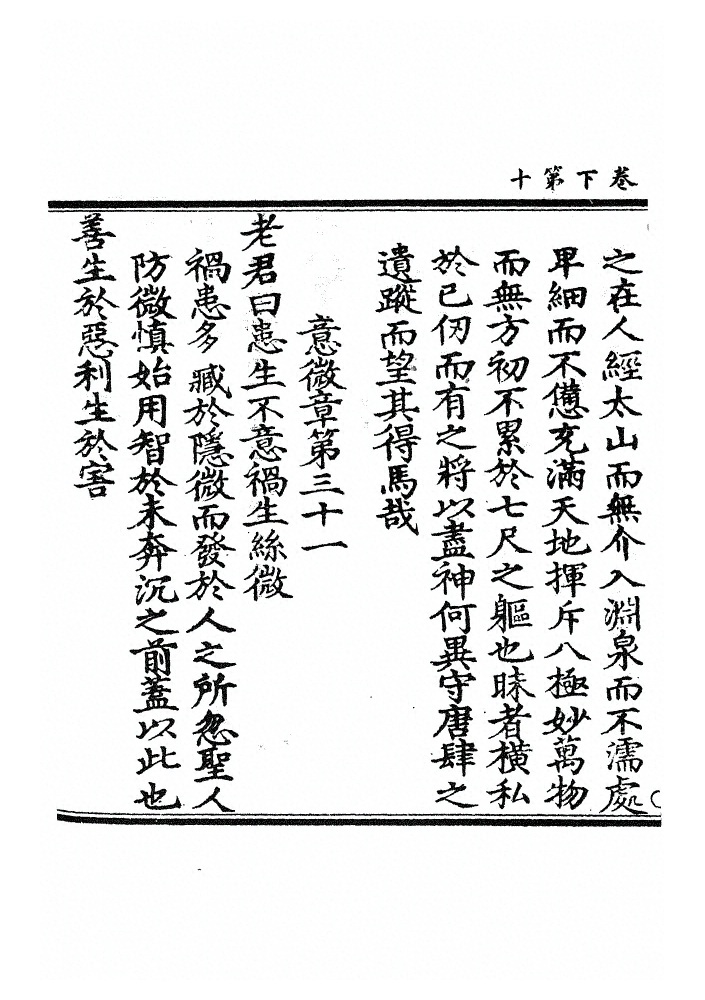 卷下第十
之在人經太山而無介入淵泉而不濡處
卑細而不憊充滿天地揮斥八極妙萬物
而無方初不累於七尺之軀也昧者橫私
於已仞而有之將以盡神何異守唐肆之
遺蹤而望其得馬哉
意微章第三十一
老君曰患生不意禍生絲微
禍患多藏於隱微而發於人之所忽聖人
防微慎始用智於未奔沉之前蓋以此也
善生於惡利生於害